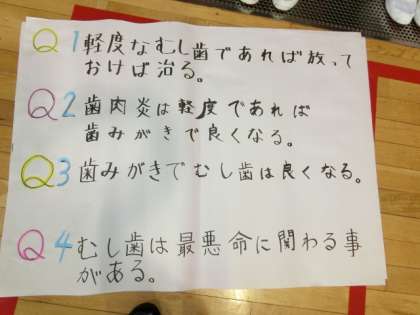 Q1 軽度なむし歯であれば放って
おけば治る。
Q2 歯肉炎は軽度であれば
歯みがきで良くなる。
Q3 歯みがきでむし歯は良くなる。
Q4 むし歯は最悪命に関わる事
がある。